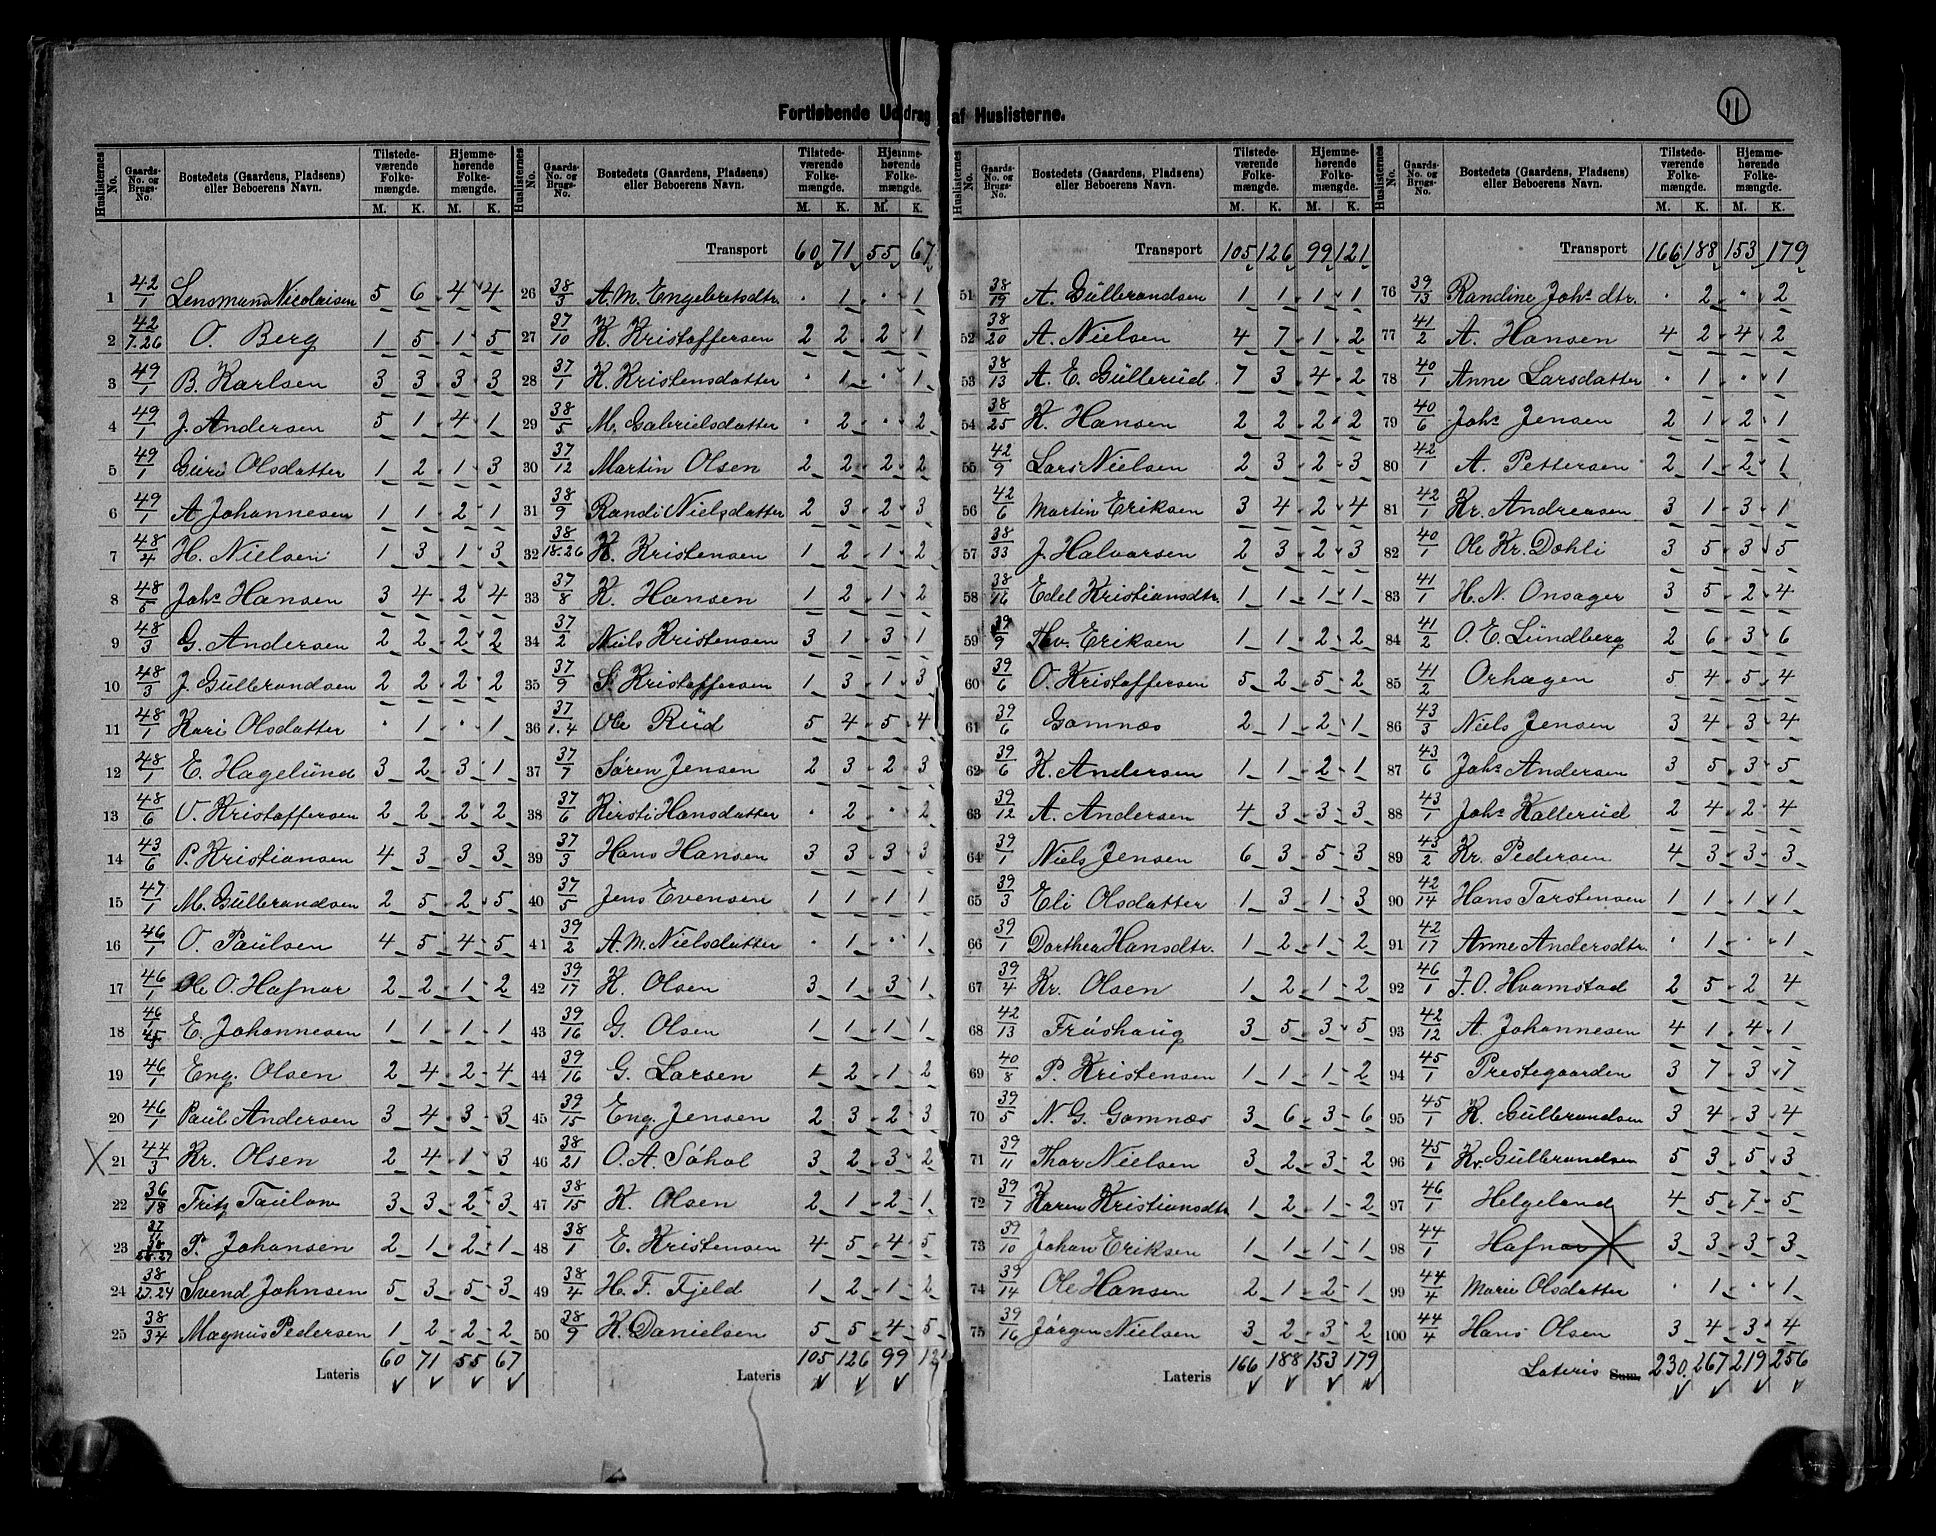 Fortløbende Uddrag af Huslisterne.
11
Huslisternes No. | Gaards-No. og Brugs-No. | Bostedets (Gaardens, Pladsens) eller Beboerens Navn. | Tilstedeværende Folkemængde. M. K. | Hjemmehørende Folkemængde. M. K.
1 42/1 Lensmand Nicolaisen 5 6 4 4
2 42/7.26 O. Berg 1 5 1 5
3 49/1 B. Karlsen 3 3 3 3
4 49/1 J. Andersen 5 1 4 1
5 49/1 Guri Olsdatter 1 2 1 3
6 49/1 A Johannesen 1 1 2 1
7 48/4 H. Nielsen 1 3 1 3
8 48/5 Johs Hansen 3 4 2 4
9 48/3 G. Andersen 2 2 2 2
10 48/3 J. Gulbrandsen 2 2 2 2
11 48/1 Kari Olsdatter . 1 . 1
12 48/1 E. Hagelund 3 2 3 1
13 48/6 O. Kristoffersen 2 2 2 2
14 43/6 P. Kristiansen 4 3 3 3
15 47/1 M. Gulbrandsen 2 5 2 5
16 46/1 O. Paulsen 4 5 4 5
17 46/1 Ole O. Hafnor 2 2 1 2
18 46/1 45/3 E. Johannesen 1 1 1 1
19 46/1 Eng. Olsen 2 4 2 4
20 46/1 Paul Andersen 3 4 3 3
X 21 44/3 Kr. Olsen 2 4 1 3
22 36/18 Fritz Taulow 3 3 2 3
x 23 P. Johansen 2 1 2 1
24 38/23.24 Svend Johnsen 5 3 5 3
25 38/34 Magnus Pedersen 1 2 2 2
Lateris 60 71 55 67
Huslisternes No. | Gaards-No. og Brugs-No. | Bostedets (Gaardens, Pladsens) eller Beboerens Navn. | Tilstedeværende Folkemængde. M. K. | Hjemmehørende Folkemængde. M. K.
Transport 60 71 55 67
26 38/3 A. M. Engebretsdtr. . 1 . 1
27 37/10 K. Kristoffersen 2 2 2 1
28 37/1 K. Kristensdatter . 1 . 1
29 38/5 M. Gabrielsdatter . 2 . 2
30 37/12 Martin Olsen 2 2 2 2
31 38/9 Randi Nielsdatter 2 3 2 3
32 38/18.26 K. Kristensen 1 2 1 2
33 37/8 K. Hansen 1 2 1 2
34 37/2 Niels Kristensen 3 1 3 1
35 37/9 S. Kristoffersen 1 3 1 3
36 37/1.4 Ole Rud 5 4 5 4
37 37/7 Søren Jensen 2 3 2 3
38 37/6 Kirsti Hansdatter . 2 . 2
39 37/3 Hans Hansen 3 3 3 3
40 37/5 Jens Evensen 1 1 1 1
41 39/2 A. M. Nielsdatter . 1 . 1
42 39/17 K. Olsen 3 1 3 1
43 39/16 G. Olsen 1 1 1 1
44 39/16 G. Larsen 1 2 1 2
45 39/15 Eng. Jensen 2 3 2 3
46 38/21 O. A. Søhol 3 2 3 2
47 38/15 K. Olsen 2 1 2 1
48 38/1 E. Kristensen 4 5 4 5
49 38/4 H. F. Fjeld 1 2 1 2
50 38/9 K. Danielsen 5 5 4 5
Lateris 105 126 99 121
Huslisternes No. | Gaards-No. og Brugs-No. | Bostedets (Gaardens, Pladsens) eller Beboerens Navn. | Tilstedeværende Folkemængde. M. K. | Hjemmehørende Folkemængde. M. K.
Transport 105 126 99 121
51 38/19 A. Gulbrandsen 1 1 1 1
52 38/20 A. Nielsen 4 7 1 2
53 38/13 A. E. Gullerud. 7 3 4 2
54 38/25 K. Hansen 2 2 2 2
55 42/9 Lars Nielsen 2 3 2 3
56 42/6 Martin Eriksen 3 4 2 4
57 38/33 J. Halvorsen 2 3 2 3
58 38/16 Edel Kristiansdtr. 1 1 1 1
59 39/9 Thv. Eriksen 1 1 2 2
60 39/6 O. Kristoffersen 5 2 5 2
61 39/6 Gomnæs 2 1 2 1
62 39/6 K. Andersen 1 1 2 1
63 39/12 A. Andersen 4 3 3 3
64 39/1 Niels Jensen 6 3 5 3
65 39/3 Eli Olsdatter 1 3 1 3
66 39/1 Dorthea Hansdtr. 1 2 1 2
67 39/4 Kr. Olsen 1 2 1 2
68 42/13 Frøshaug 3 5 3 5
69 40/8 P. Kristensen 1 1 1 2
70 39/5 N. G. Gomnæs 3 6 3 6
71 39/11 Thor Nielsen 3 2 3 2
72 39/7 Karen Kristiansdtr 1 2 1 2
73 39/10 Johan Eriksen 1 1 1 1
74 39/14 Ole Hansen 2 1 2 1
75 39/16 Jørgen Nielsen 3 2 3 2
Lateris 166 188 153 179
Huslisternes No. | Gaards-No. og Brugs-No. | Bostedets (Gaardens, Pladsens) eller Beboerens Navn. | Tilstedeværende Folkemængde. M. K. | Hjemmehørende Folkemængde. M. K.
Transport 166 188 153 179
76 39/13 Randine Johs dtr. . 2 . 2
77 41/2 A. Hansen 4 2 4 2
78 40/1 Anne Larsdatter . 1 . 1
79 40/6 Johs Jensen 2 1 2 1
80 42/1 A. Pettersen 2 1 2 1
81 42/1 Kr. Andreasen 3 1 3 1
82 40/1 Ole Kr. Dæhli 3 5 3 5
83 41/1 H. N. Onsager 3 5 2 4
84 41/2 O. E. Lundberg 2 6 3 6
85 41/2 Orhagen 5 4 5 4
86 43/3 Niels Jensen 3 4 3 4
87 43/6 Johs Andersen 3 5 3 5
88 43/1 Johs Kallerud 2 4 2 4
89 43/2 Kr. Pedersen 4 3 3 3
90 42/14 Hans Torstensen 1 1 1 1
91 42/17 Anne Andersdtr. . 1 . 1
92 46/1 J. O. Hvamstad 2 5 2 4
93 42/12 A. Johannesen 4 1 4 1
94 45/1 Prestegaarden 3 7 3 7
95 45/1 K. Gulbrandsen 3 4 3 4
96 45/1 Kr. Gulbrandsen 5 3 5 3
97 46/1 Helgeland 4 5 7 5
98 44/1 Hafnor X 3 3 3 3
99 44/4 Marie Olsdatter . 1 . 1
100 44/4 Hans Olsen 3 4 3 4
Lateris Sum. 230 267 219 256